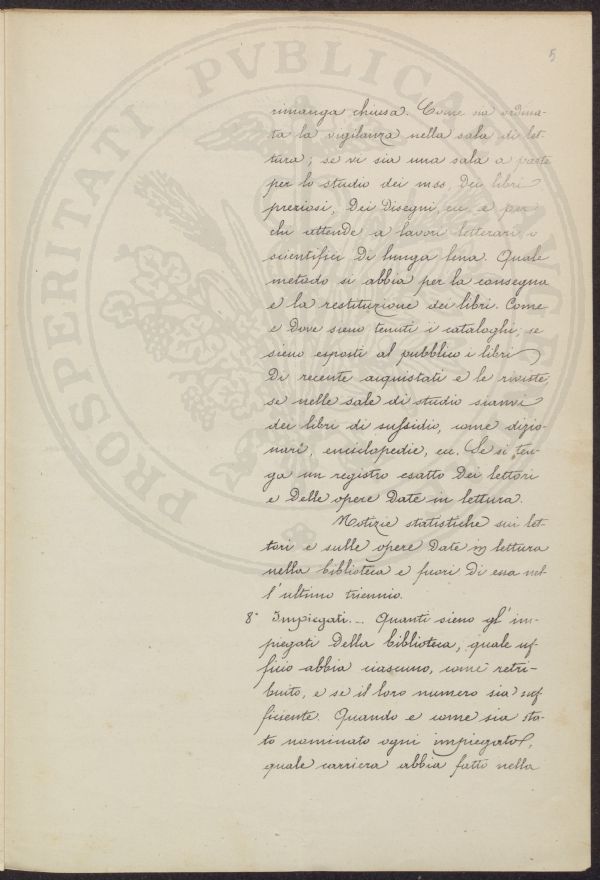 5
rimanga chiusa. Come sia ordina-
ta la vigilanza nella sala di let-
tura; se vi sia una sala a parte
per lo studio dei mss, dei libri
preziosi, dei disegni, ecc. e per
chi attende a lavori letterari o
scientifici di lunga lena. Quale
metodo si abbia per la consegna
e la restituzione dei libri. Come
e dove sieno tenuti i cataloghi; se
sieno esposti al pubblico i libri
di recente acquistati e le riviste,
se nelle sale di studio sianvi
dei libri di sussidio, come dizio-
nari, enciclopedie, ecc. Se si ten-
ga un registro esatto dei lettori
e delle opere date in lettura.
Notizie statistiche sui let-
tori e sulle opere date in lettura
nella biblioteca e fuori di essa nel-
l'ultimo triennio.
8° Impiegati. - Quanti sieno gl'im-
piegati della biblioteca, quale uf-
ficio abbia ciascuno, come retri-
buito, e se il loro numero sia suf-
ficiente. Quando e come sia sta-
to nominato ogni impiegato,
quale carriera abbia fatto nella
PROSPERITATI PVBLICAE